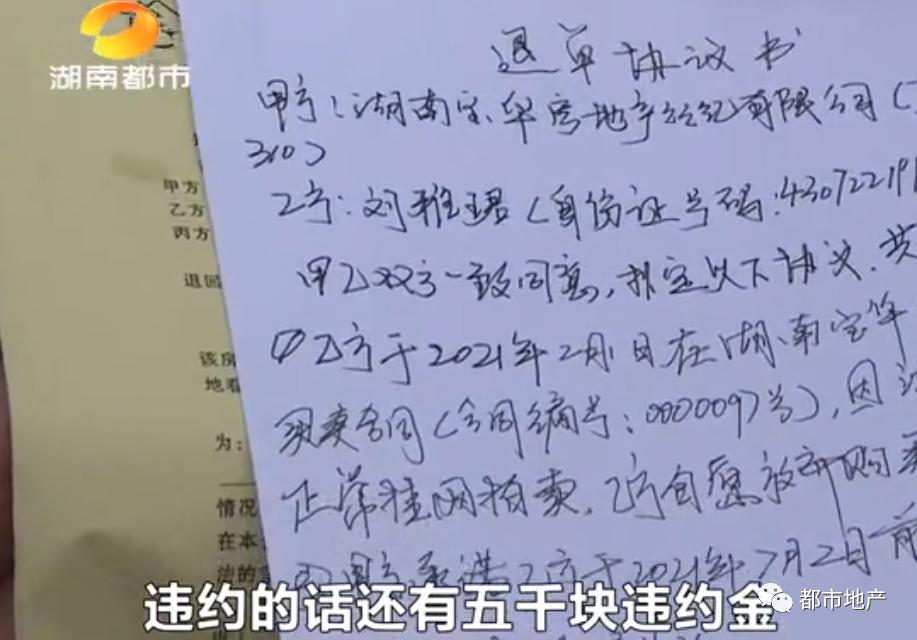 湖南都市
退单协议书
甲方:湖南宝华房地产经纪有限公司(
310)
乙方:刘雅珺(身份证号码:430722191
甲乙双方一致同意,拟定以下协议,共
①乙方于2021年2月1日在湖南宝华
买卖合同(合同编号:0000097号),因
正常挂网拍卖,乙方自愿放弃购买
乙方于2021年7月2日前
甲方
乙方
丙方
退回
该房
地看
为:
情况
在本
法的
违约的话还有五千块违约金
都市地产